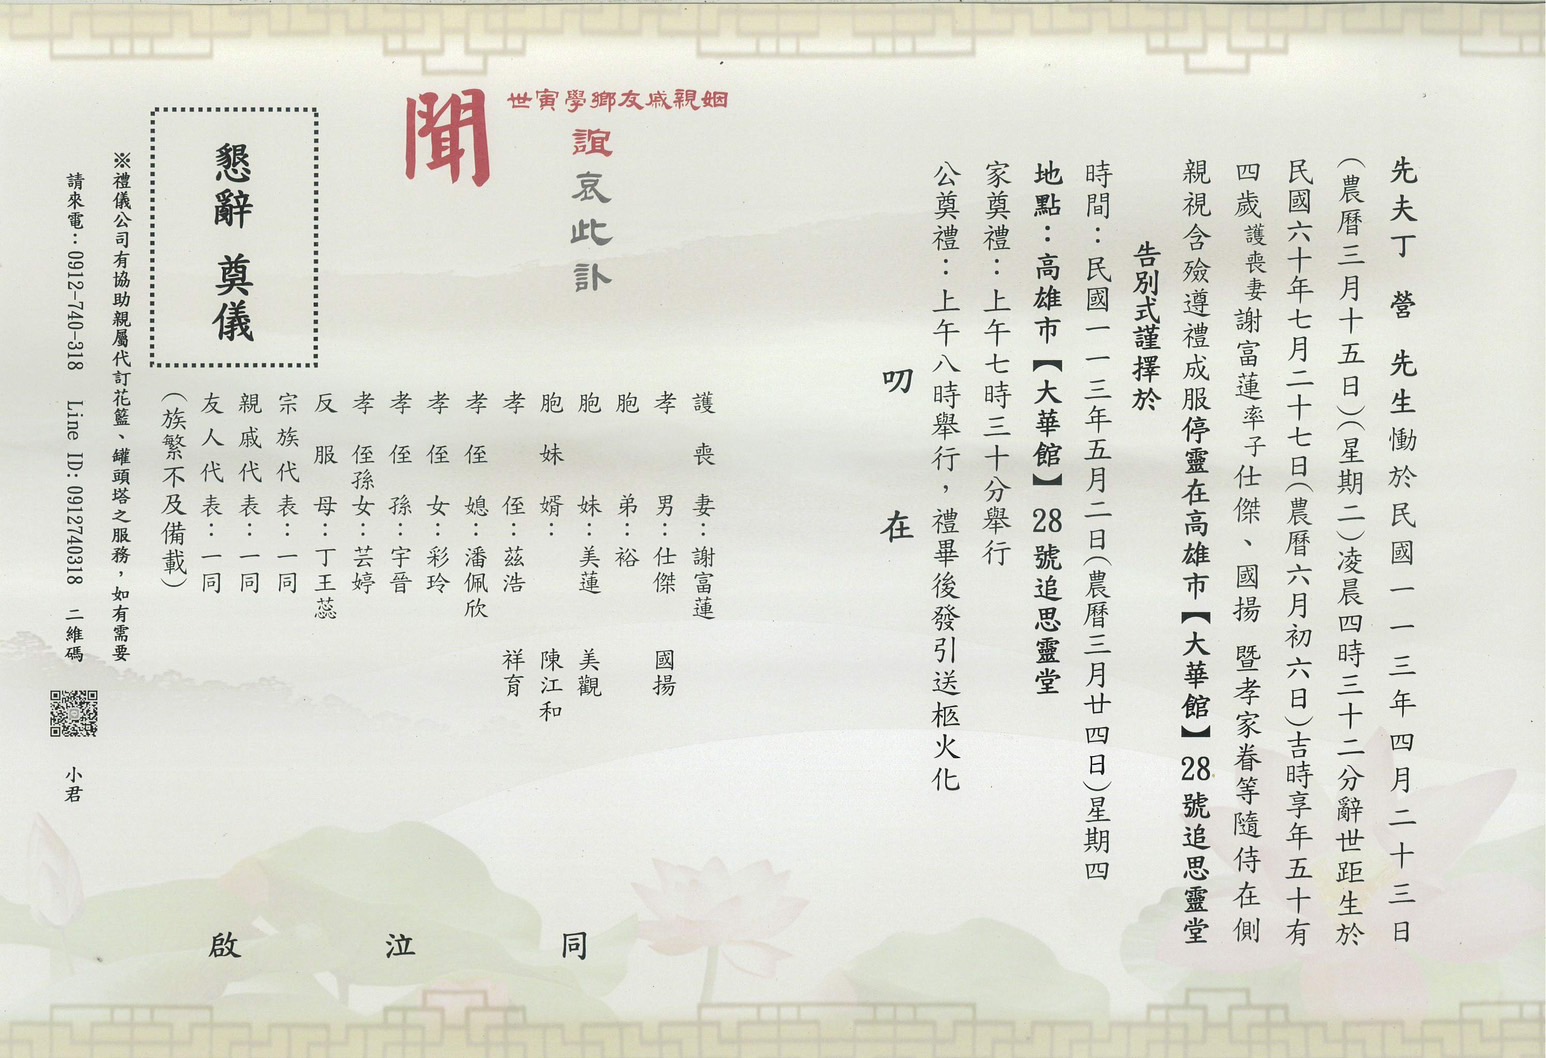 先夫丁 營 先生慟於民國一一三年四月二十三日
(農曆三月十五日)(星期二)凌晨四時三十二分辭世距生於
民國六十年七月二十七日(農曆六月初六日)吉時享年五十有
四歲護喪妻謝富蓮率子仕傑、國揚 暨孝家眷等隨侍在側
親視含殮遵禮成服停靈在高雄市【大華館】28號追思靈堂
告別式謹擇於
時間：民國一一三年五月二日(農曆三月廿四日)星期四
地點：高雄市【大華館】28號追思靈堂
家奠禮：上午七時三十分舉行
公奠禮：上午八時舉行，禮畢後發引送柩火化
叨 在
姻親戚友鄉學寅世
誼
哀此訃
聞
護喪妻：謝富蓮
孝男：仕傑 國揚
胞弟：裕
胞妹：美蓮 美觀
胞妹婿： 陳江和
孝侄：茲浩 祥育
孝侄媳：潘佩欣
孝侄女：彩玲
孝侄孫：宇晉
孝侄孫女：芸婷
反服母：丁王蕊
宗族代表：一同
親戚代表：一同
友人代表：一同
(族繁不及備載)
同 泣 啟
懇辭 奠儀
※禮儀公司有協助親屬代訂花籃、罐頭塔之服務，如有需要
請來電：0912-740-318 Line ID: 0912740318 二維碼 小君